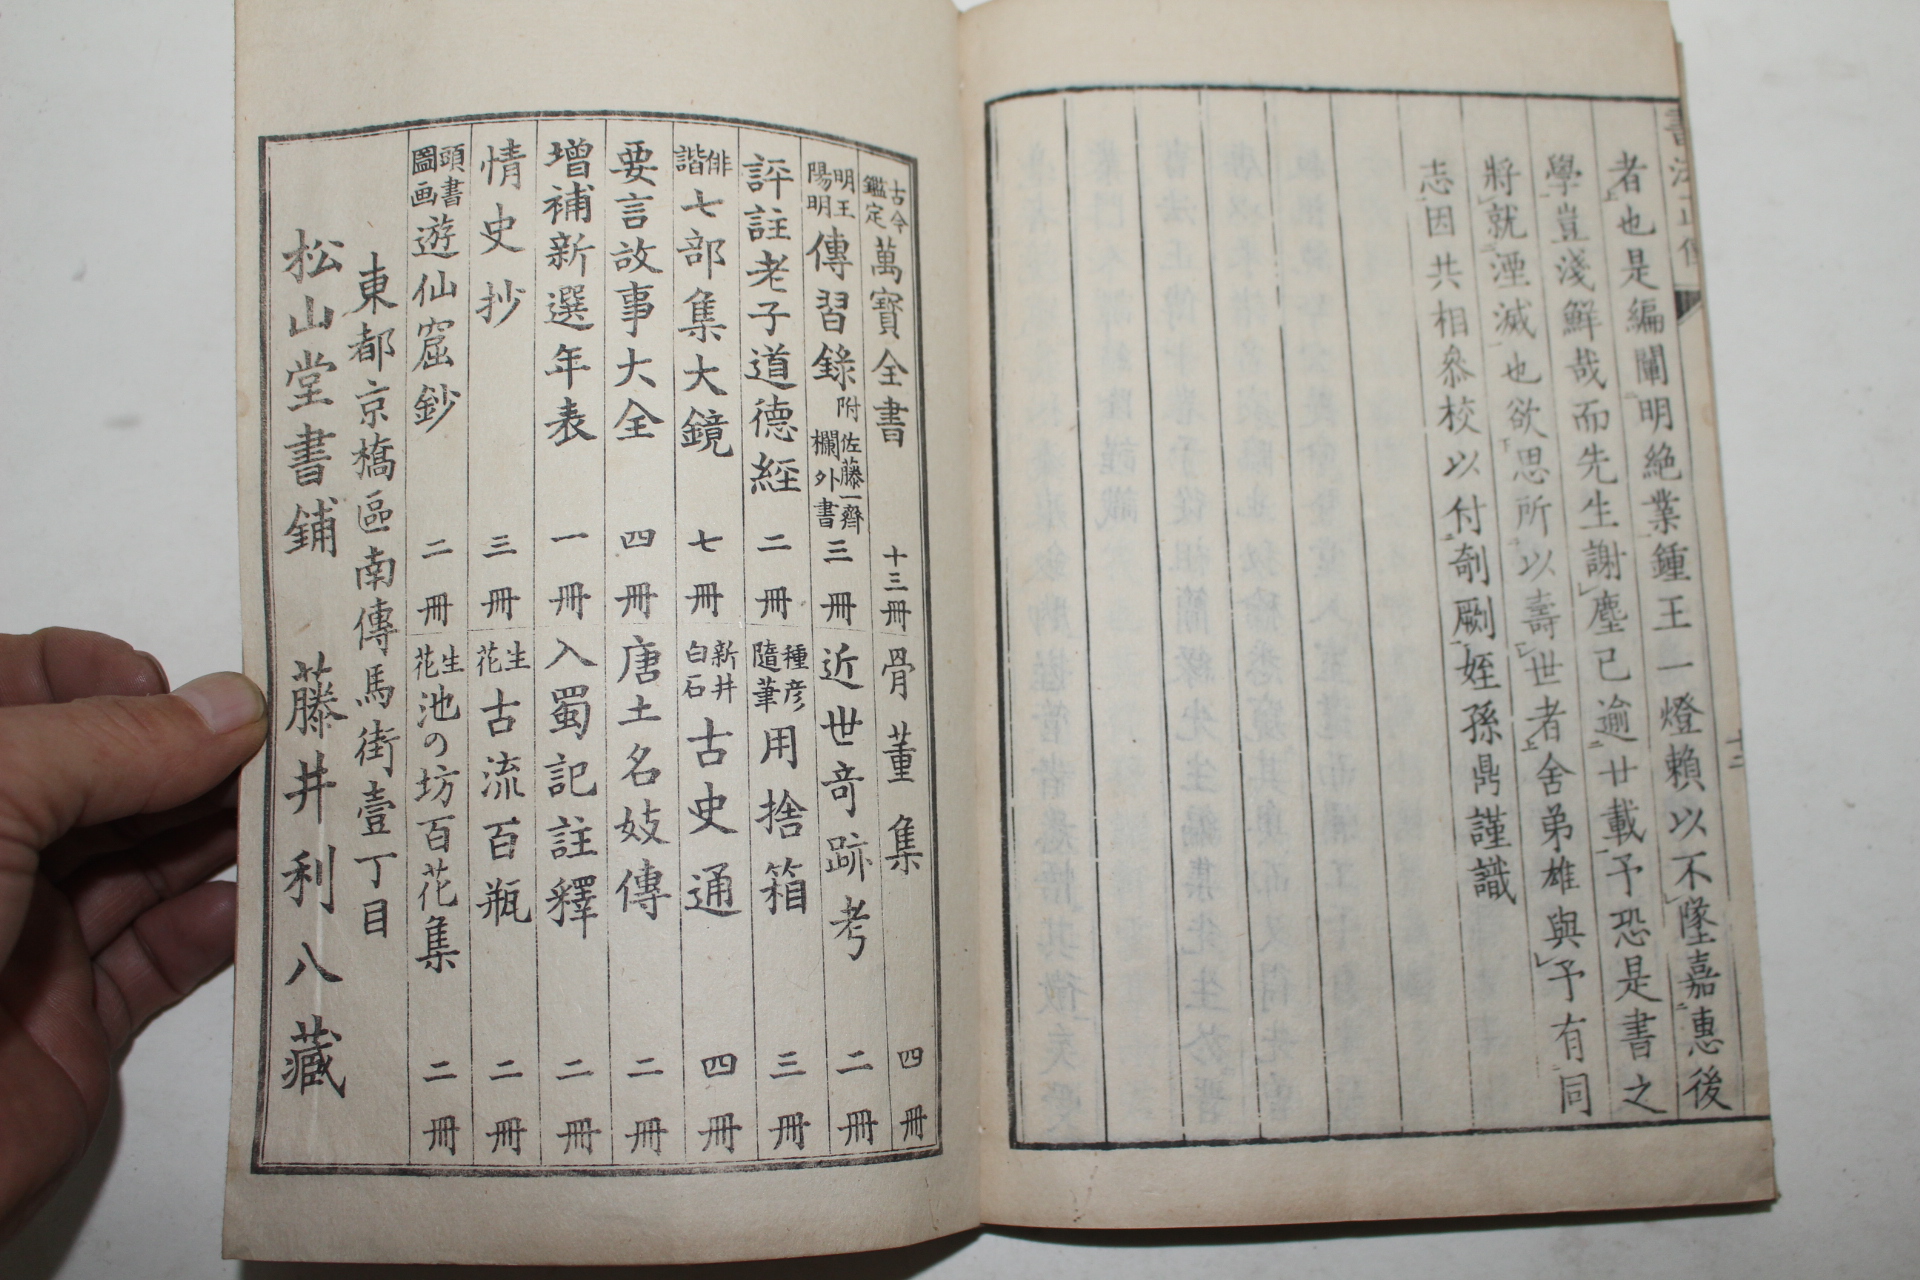 者也是編闡明絶業鍾王一燈賴以不墜嘉惠後
學豈淺鮮哉而先生謝塵已逾廿載予恐是書之
將就湮滅也欲思所以壽世者舍弟雄與予有同
志因共相叅校以付剞劂姪孫鼎謹識
十三
古今鑑定 萬寶全書 十三冊
骨董集 四冊
明王陽明 傳習錄 附佐藤一齊欄外書 三冊
近世竒跡考 二冊
評註老子道德経 二冊
種彦隨筆 用捨箱 三冊
俳諧 七部集大鏡 七冊
新井白石 古史通 四冊
要言故事大全 四冊
唐土名妓傳 二冊
增補新選年表 一冊
入蜀記註釋 二冊
情史抄 三冊
生花 古流百瓶 二冊
頭書圖画 遊仙窟鈔 二冊
生花 池の坊百花集 二冊
東都京橋區南傳馬街壹丁目
松山堂書鋪 藤井利八藏